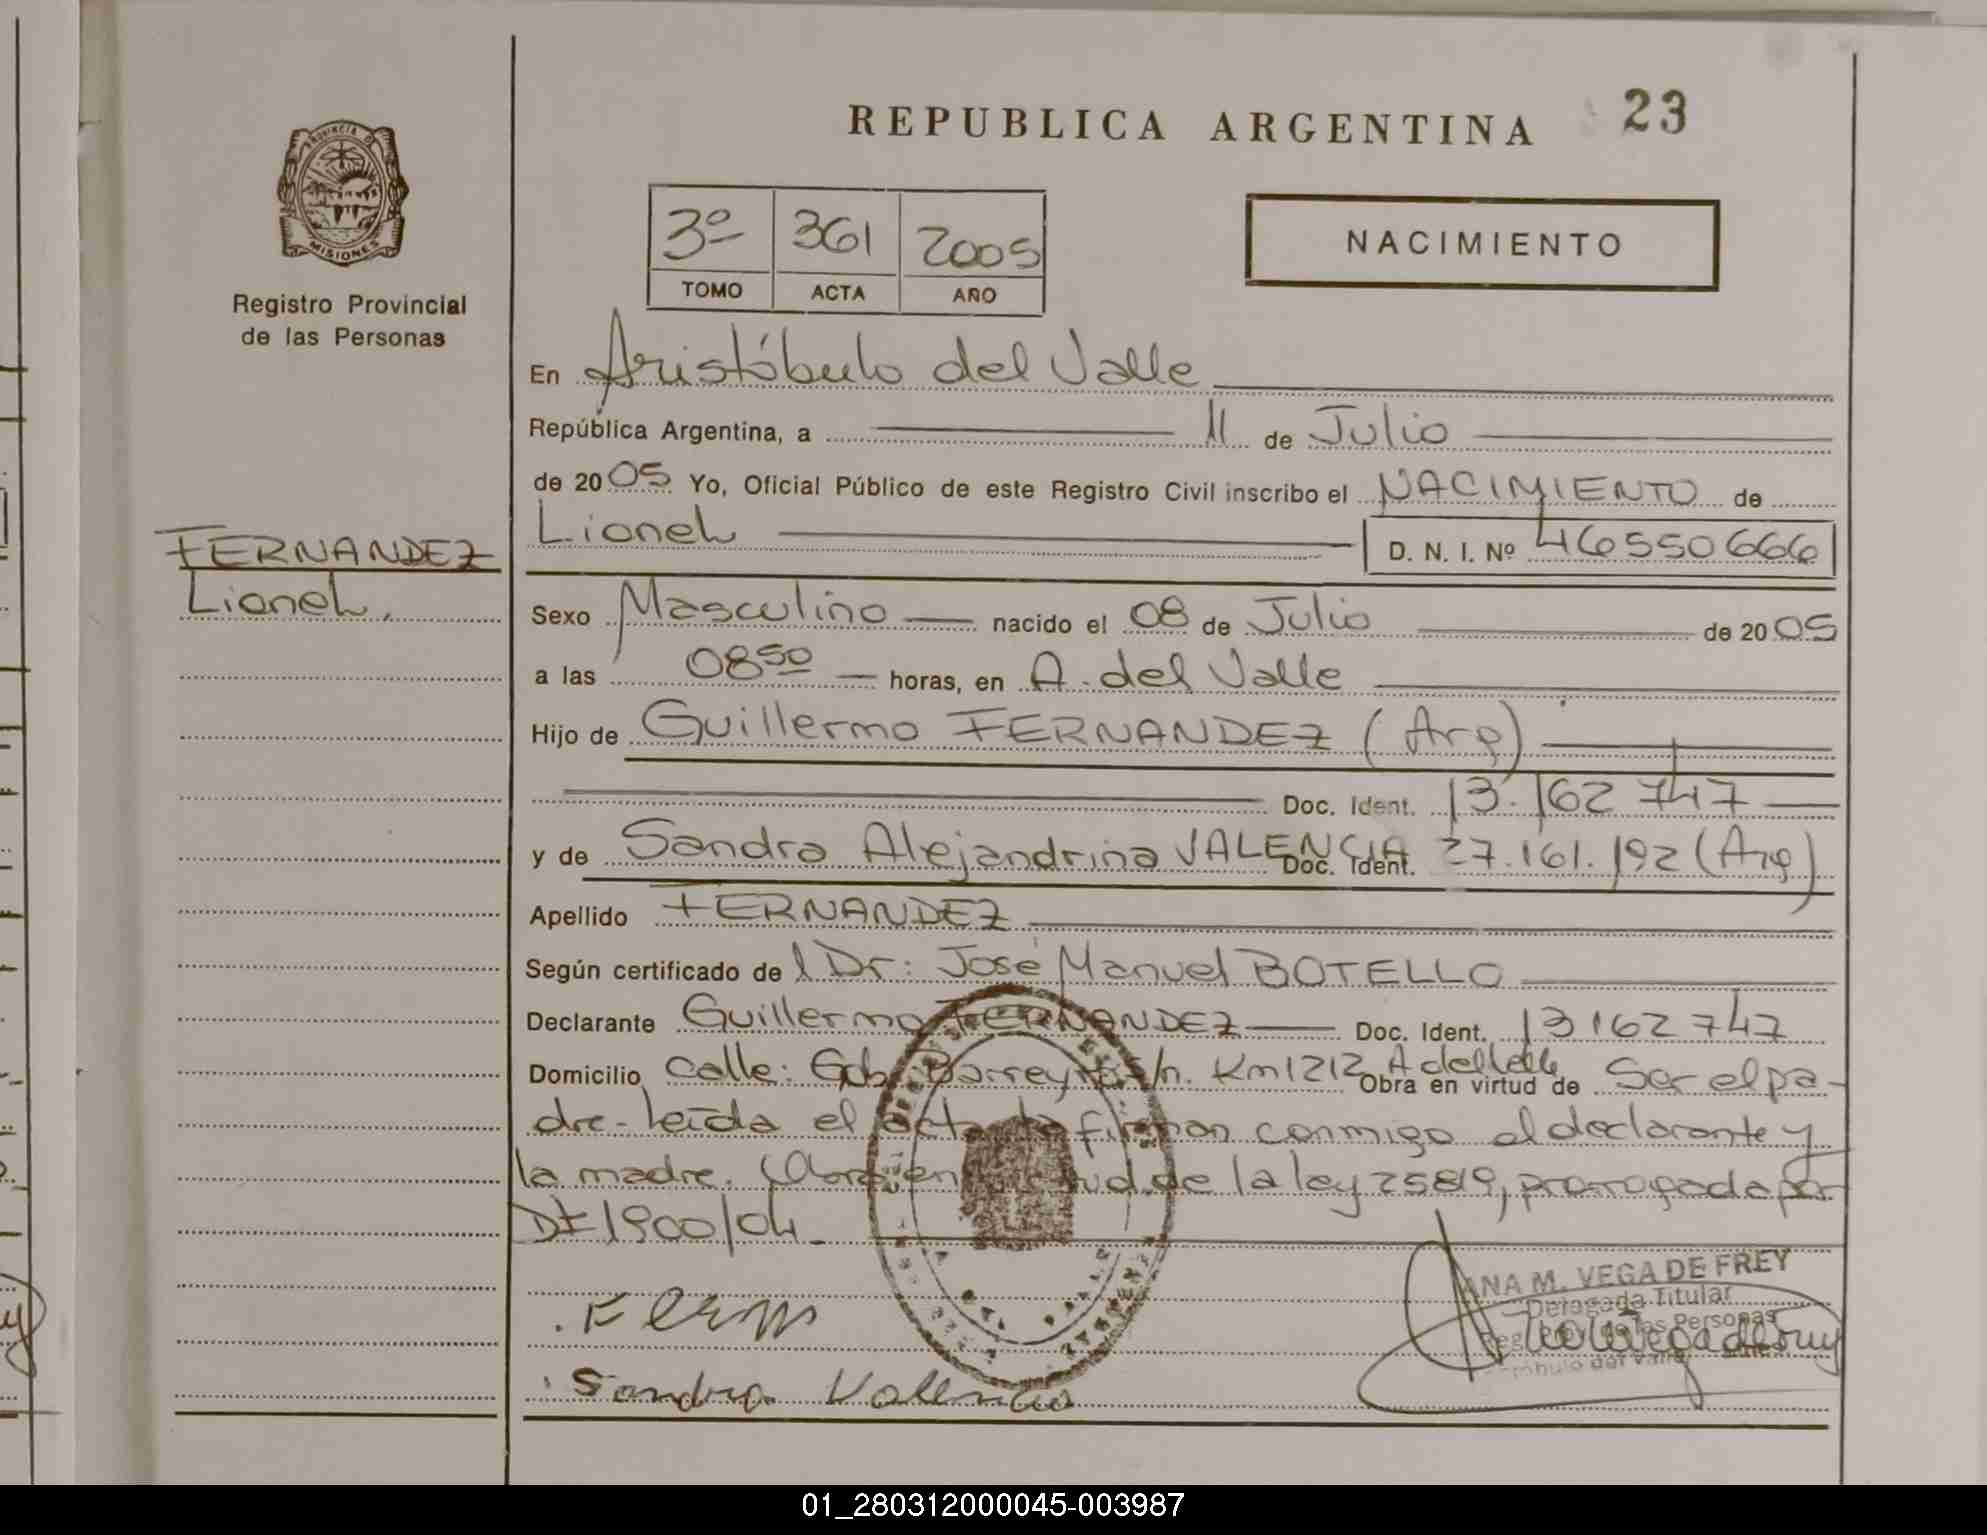 REPUBLICA ARGENTINA 23
PROVINCIA D
MISIONES
Registro Provincial
de las Personas
3º 361 2005
TOMO ACTA AÑO
NACIMIENTO
En Aristóbulo del Valle
República Argentina, a 11 de Julio
de 2005 Yo, Oficial Público de este Registro Civil inscribo el NACIMIENTO de
Lionel D. N. I. Nº 46550666
FERNANDEZ
Lionel.
Sexo Masculino nacido el 08 de Julio de 2005
a las 08 50 horas, en A. del Valle
Hijo de Guillermo FERNANDEZ (Arg)
Doc. Ident. 13.162747
y de Sandra Alejandrina VALENCIA Doc. Ident. 27.161.192 (Arg)
Apellido FERNANDEZ
Según certificado de l Dr: José Manuel BOTELLO
Declarante Guillermo FERNANDEZ Doc. Ident. 13162747
Domicilio Calle: Gob. Barreyro s/n. Km1212 A del Valle Obra en virtud de Ser el pa-
dre- Leída el acta la firman conmigo el declarante y
la madre. Obra en virtud de la ley 25819, prorrogada por
Dt 1900/04.
ANA M. VEGA DE FREY
Delegada Titular
de las Personas
del Valle
Sandra Valencia
01_280312000045-003987